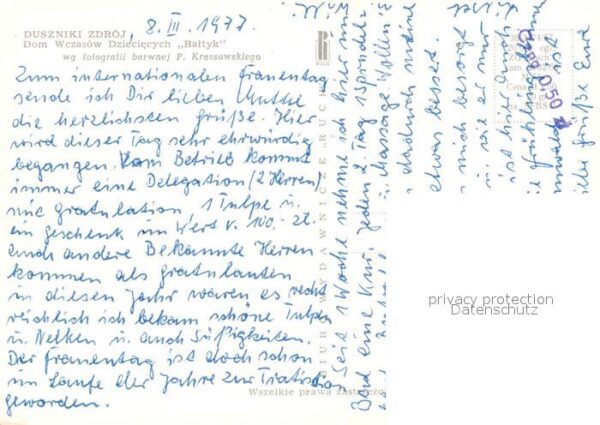 DUSZNIKI ZDRÓJ, 8. III. 1977.
Dom Wczasów Dziecięcych „Bałtyk”
wg fotografii barwnej P. Krassowskiego
Zum internationalen Frauentag
sende ich Dir lieben Mutti
die herzlichsten Grüße. Hier
wird dieser Tag sehr ehrwürdig
begangen. Vom Betrieb kommt
immer eine Delegation (2 Herren)
mit Gratulation 1 Tulpe u.
ein Geschenk im Wert v. 100. zł.
Auch andere Bekannte Herren
kommen als Gratulanten
in diesen Jahr waren es recht
reichlich ich bekam schöne Tulpen
u. Nelken u. auch Süßigkeiten.
Der Frauentag ist doch schon
im Laufe der Jahre zur Tradition
geworden.
Wszelkie prawa zastrzeżone
BIURO WYDAWNICZE „RUCH”
Seit 1 Woche nehme ich hier im
Bad eine Kur. Jeden 2 Tag 1 Sprudel
Massage
dadurch
etwas besser.
mich besorgt
u. wie er nur
ist hier
Frühling
Grüße
Cena 0,50 zł
privacy protection
Datenschutz